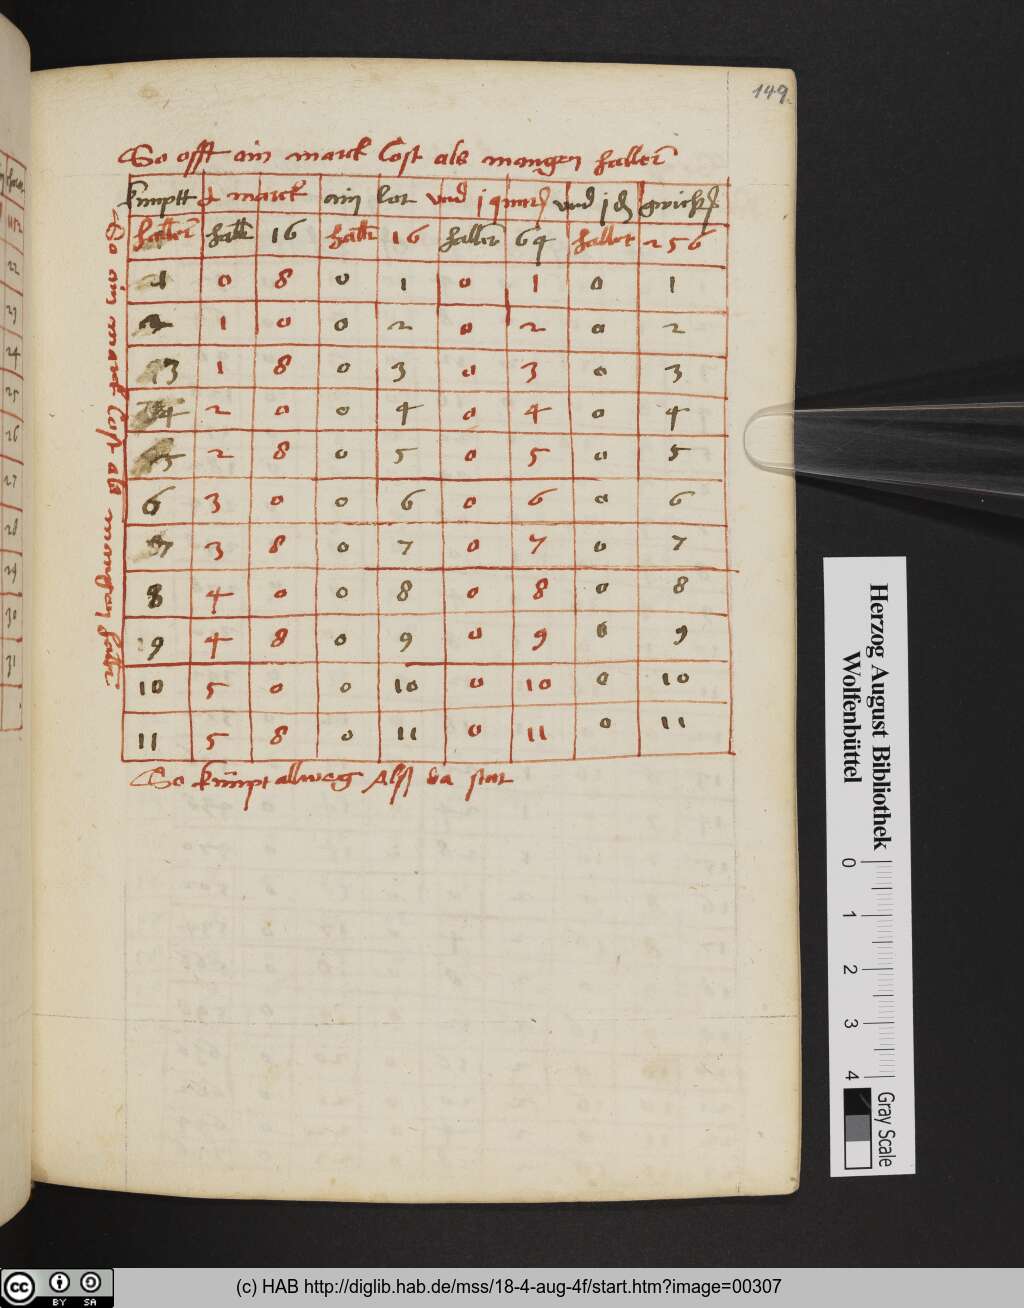 149
So offt ain marck cost als mangen haller
kumptt ½ marck ain lot und j quart und j d gwicht
haller hallr 16 hallr 16 haller 64 haller 256
1 0 8 0 1 0 1 0 1
2 1 0 0 2 0 2 0 2
3 1 8 0 3 0 3 0 3
4 2 0 0 4 0 4 0 4
5 2 8 0 5 0 5 0 5
6 3 0 0 6 0 6 0 6
7 3 8 0 7 0 7 0 7
8 4 0 0 8 0 8 0 8
9 4 8 0 9 0 9 0 9
10 5 0 0 10 0 10 0 10
11 5 8 0 11 0 11 0 11
So kumpt allweg Alß da stat
So ain marck cost als mangen hallr
22
23
24
25
26
27
28
29
30
31
Herzog August Bibliothek
Wolfenbüttel
0 1 2 3 4
Gray Scale
cc BY SA
(c) HAB http://diglib.hab.de/mss/18-4-aug-4f/start.htm?image=00307